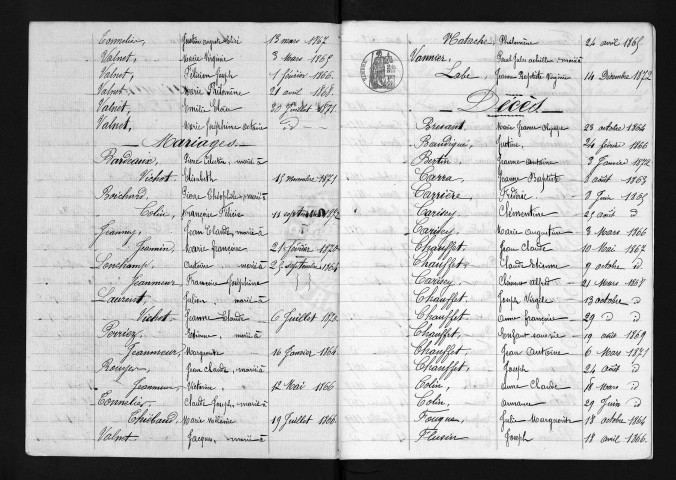 Tonnelier, Justin auguste Désiré 13 mars 1867
Valnet, Marie Virginie 3 Mars 1865
Valnet, Félicien Joseph 1 février 1866
Valnet Marie Philomène 21 avril 1868
Valnet, Emélie Eloïse 20 Juillet 1871
Valnet, Marie Joséphine octavie d°
Mariages.
Bardeaux, Pierre Célestin, marié à
Vichot Elisabeth 15 novembre 1871
Boichard, Pierre Théophile, marié à
Colin, Françoise Félicie 11 septembre 1872
Jeanney, Jean Claude, marié à
Jeannin, Marie françoise 21 février 1870
Lonchamp, Antoine, marié à 25 septembre 1864
Jeanmeur Francoise Joséphine
Laurent, Julien, marié à
Vichot Jeanne Claude 6 Juillet 1870
Perriez, Etienne, marié à
Jeanmeur, Marguerite 16 Janvier 1864
Rouyer Jean Claude, marié à
Jeanmeur, Victorine 12 Mai 1866
Tonnelier, Claude Joseph, marié à
Thiébaud, Marie mélanie 19 Juillet 1866
Valnet Jacques, marié à
Natache, Philomène 24 avril 1865
Vannier, Paul Jules achille, marié à
Labe, Jeanne Baptiste Virginie 14 Décembre 1872
Décès.
Bresant Marie Jeanne Olympe 23 octobre 1864
Baudique, Justine, 24 février 1866
Bertin, Jeanne antoine 2 Janvier 1872
Carra Jeanne Baptiste 8 août 1863
Carrière, Frédéric 8 Juin 1865
Carisey Clémentine 25 août d°
Carisey, Marie augustine 3 Mars 1866
Chauffet, Jean Claude 10 Mai 1867
Chauffet, Claude Etienne 9 octobre d°
Carisey Clément alfred 21 Mars 1868
Chauffet, Joseph Virgile 13 octobre d°
Chauffet Anne francoise 29 d° d°
Chauffet, Enfant sans vie 19 août 1869
Chauffet, Jean Antoine 6 Mars 1871
Chauffet, Joseph 24 août d°
Colin, Anne Claude 18 Mars d°
Colin, Armance 29 Juin d°
Fougne, Julie Marguerite 18 octobre 1864
Flusin Joseph 18 avril 1866